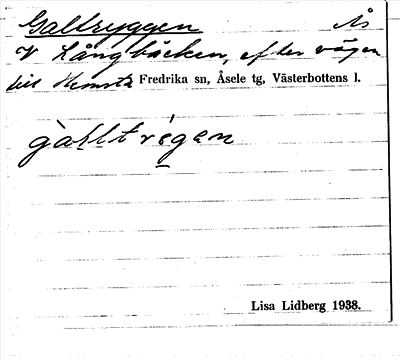 Galtryggen Ås
V Långbäcken, efter vägen
till Hemsta Fredrika sn, Åsele tg, Västerbottens l.
gàḷltrýgen
Lisa Lidberg 1938.